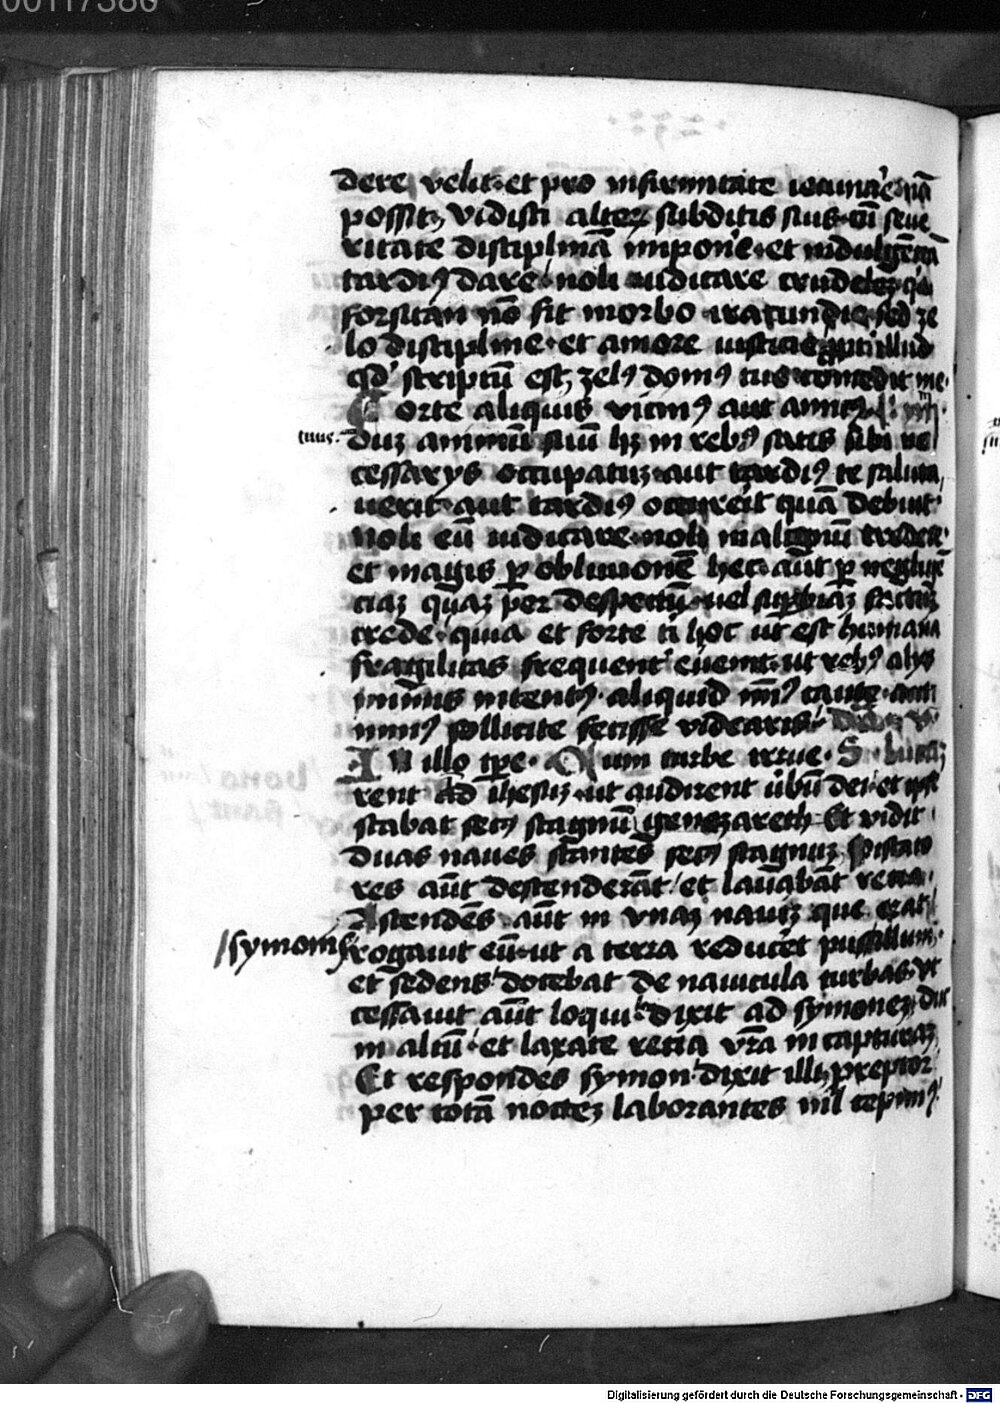 00117380
dere velit et pro infirmitate ieiunare nō
possit. vidisti alterꝫ subditis suis cū seue
ritate disciplinā imponē et indulgētiā
tardiꝰ dare noli iudicare crudeleꝫ qa
forsitan nō fit morbo iracundie sed ze
lo discipline et amore iusticie illud
qd' scriptū est zelꝰ domꝰ tue comedit me
Forte aliquis viciniꝰ aut amicꝰ
tuus
duꝫ animū suū in rebꝰ satis sibi ne
cessarys occupatuꝫ aut tardiꝰ te saluta
uerit aut tardiꝰ occurerit quā debuit
noli eū iudicare noli malignū credere
et magis p obliuionē hec aūt p neglige
ciaꝫ quaꝫ per despectū uel supbiaꝫ factuꝫ
crede quia et forte ti hoc ut est humana
fragilitas frequent' euenit ut rebꝰ alys
nimis intentꝰ aliquid minꝰ caute aut
minꝰ sollicite fecisse videaris
In illo tpe Qum turbe irrue
rent ad ihesuꝫ ut audirent ūbū dei et ipse
stabat secꝰ stagnū genezareth Et vidit
duas naues stantes secꝰ stagnuꝫ Piscato
res aūt descenderāt et lauabāt recia
Ascendēs aūt in vnaꝫ nauiꝫ que erat
/symonis
rogauit eū ut a terra reducēt pusillum
et sedens docebat de nauicula turbas vt
cessauit aūt loqui dixit ad symoneꝫ duc
in altū et laxate recia vr̄a in capturaꝫ
Et respondēs symon dixit illi preceptor
per totā nocteꝫ laborantes nil cepimꝰ
Digitalisierung gefördert durch die Deutsche Forschungsgemeinschaft - DFG